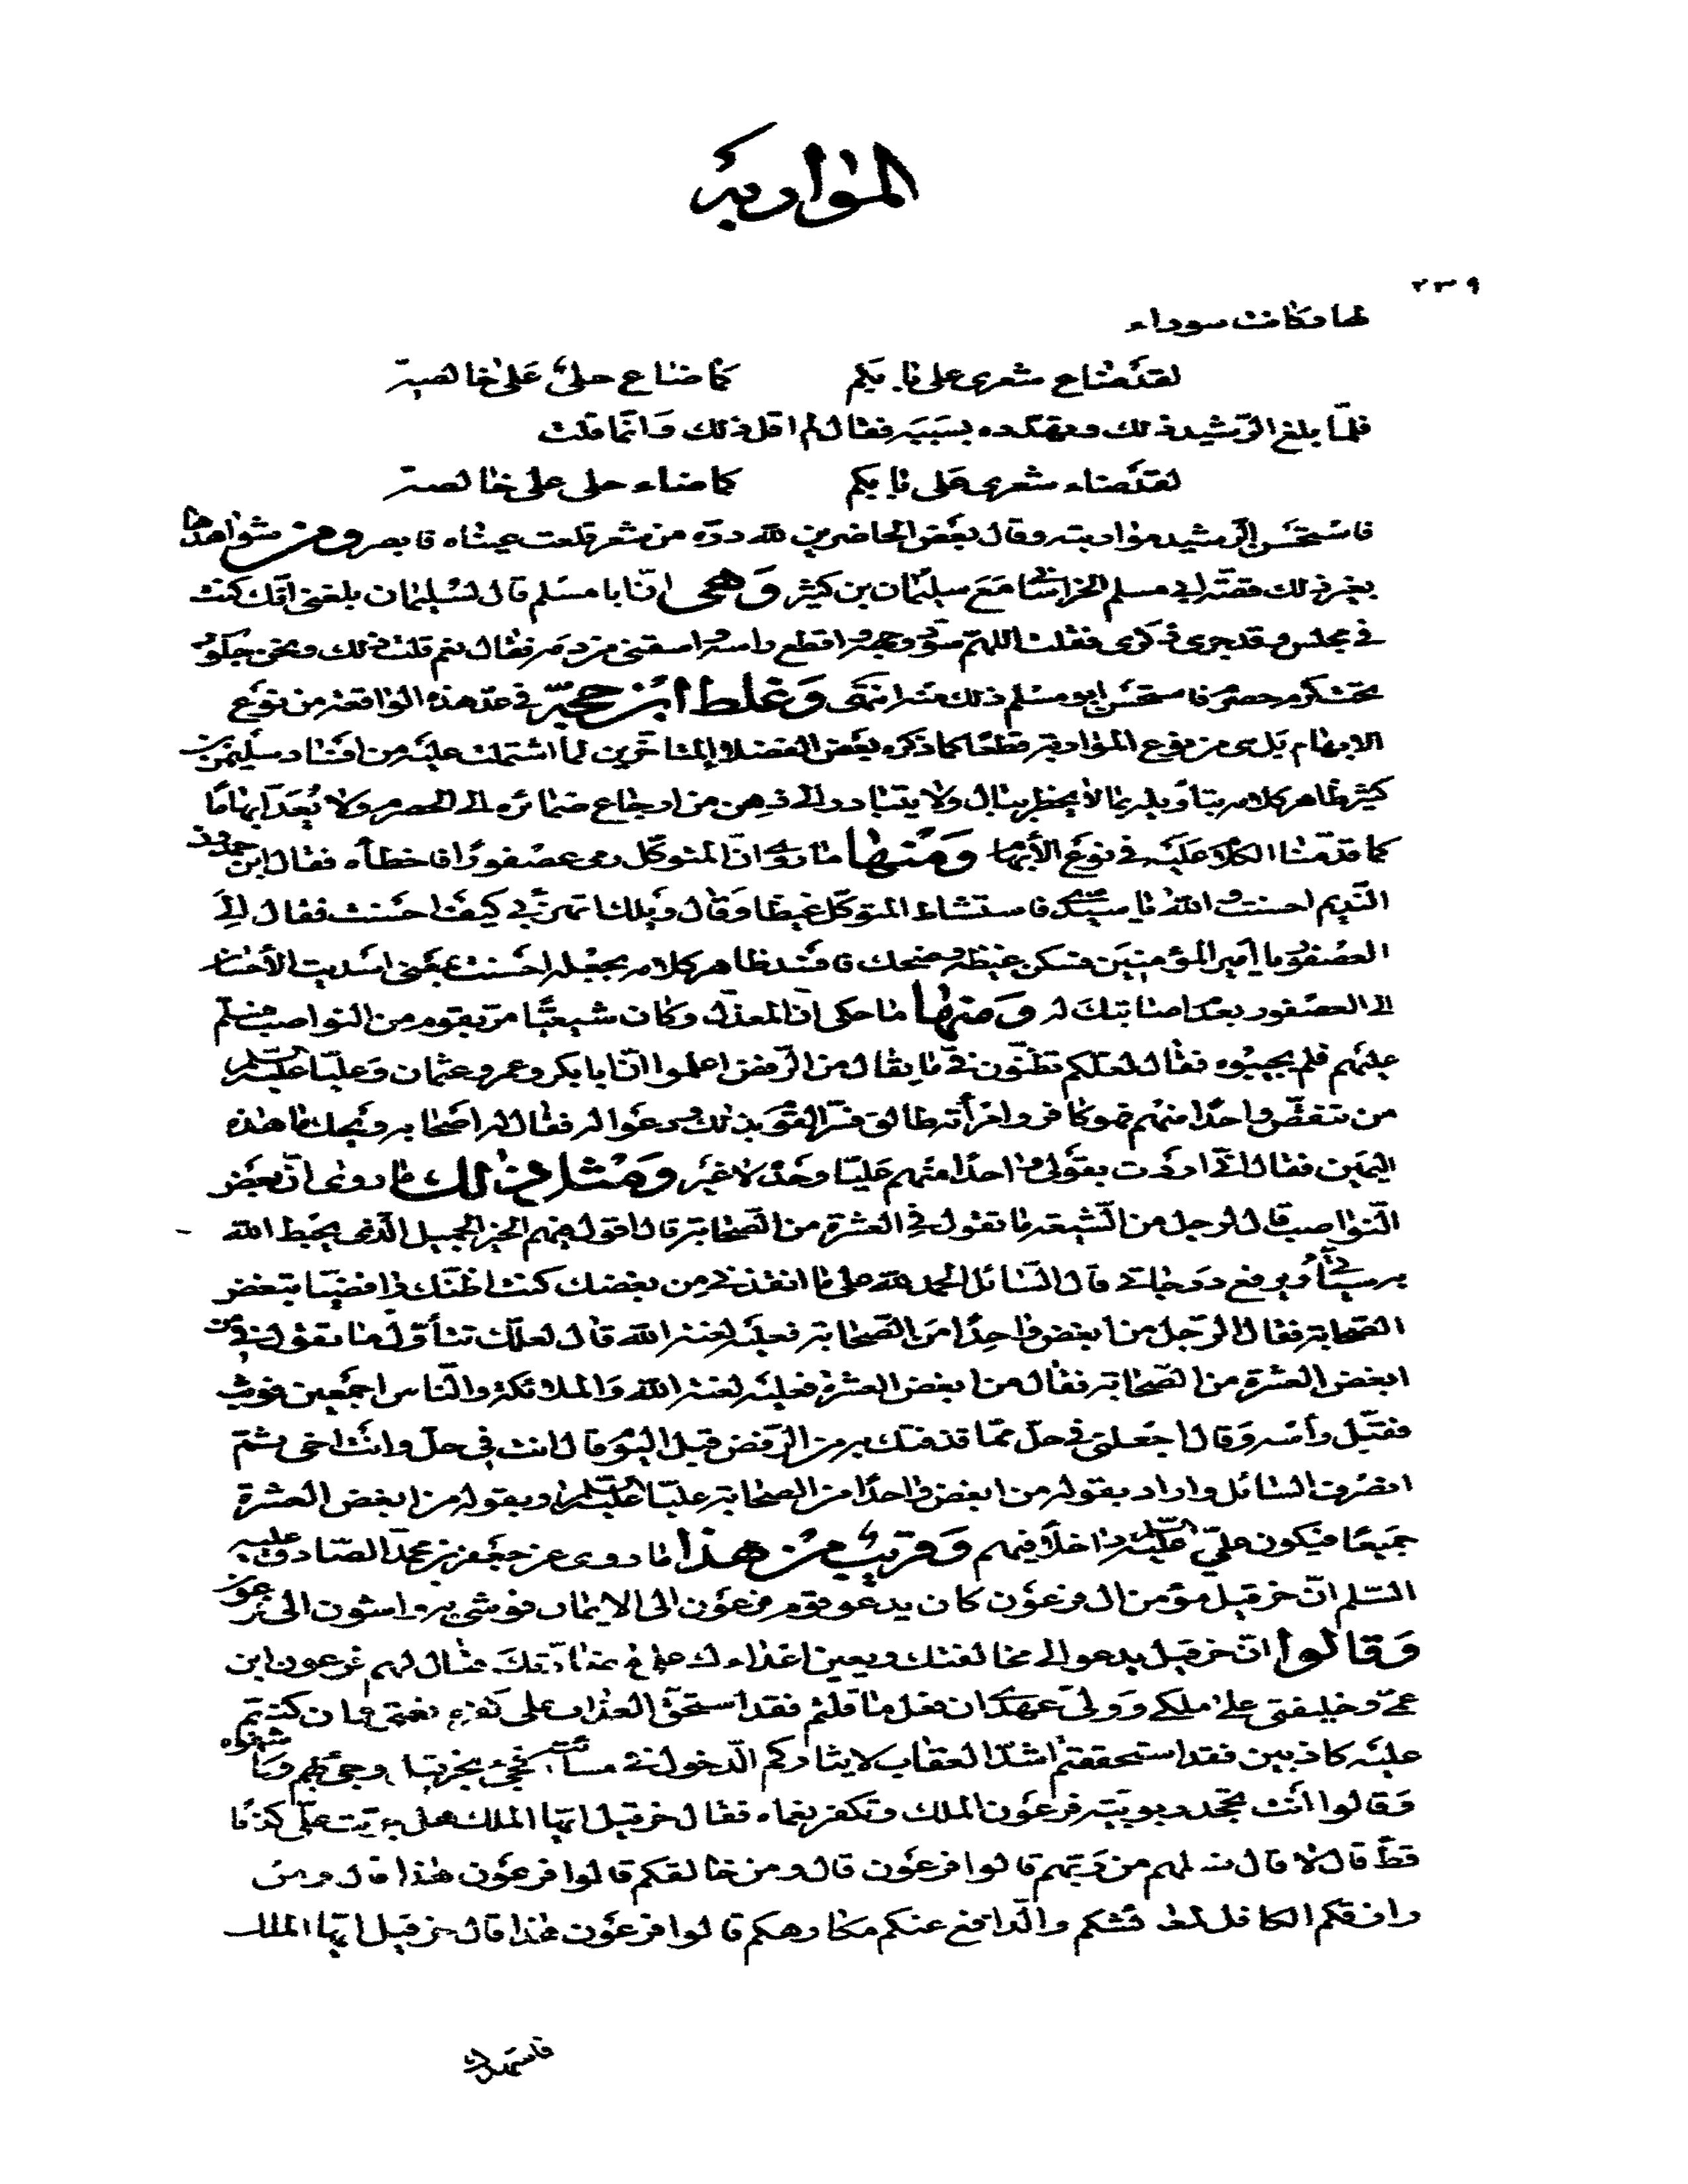 المواربة
٢٣٩
لها وكانت سوداء
لقد ضاع شعري على بابكم كما ضاع حلي على خالصة
فلما بلغ الرشيد ذلك وتهدده بسببه فقال لم اقل ذلك وانما قلت
لقد ضاء شعري على بابكم كما ضاء حلي على خالصة
فاستحسن الرشيد مواربته وقال بعض الحاضرين لله درّه من شعر قلعت عيناه فابصر ومن شواهدها
بغير ذلك قصة ابي مسلم الخراساني مع سليمان بن كثير وهي انّ ابا مسلم قال لسليمان بلغني انك كنت
في مجلس وقد جرى ذكرى فقلت اللهم سوّد وجهه واقطع راسه واسقني من دمه فقال نعم قلت ذلك ونحن جلوس
تحت كرم حصرم فاستحسن ابو مسلم ذلك منه انتهى وغلط ابن حجة في عد هذه الواقعة من نوع
الابهام بل هى من نوع المواربة قطعًا كما ذكره بعض الفضلاء المتاخرين لما اشتملت عليه من افساد سليمن بن
كثير ظاهر كلامه بتأويله بما لا يخطر ببال ولا يتبادر الى ذهن من ارجاع ضمائره الى الحصرم ولا يُعَد ابهامًا
كما قدمنا الكلام عليه في نوع الأبهام ومنها ما روى انّ المتوكل رمى عصفورًا فاخطأه فقال ابن حمدون
النديم احسنت والله يا سيدي فاستشاط المتوكل غيظا وقال ويلك اتهزء بي كيف احسنت فقال الى
العصفور يا امير المؤمنين فسكن غيظه وضحك فافسد ظاهر كلامه بجعله احسنت بمعنى اسديت الأحسان
الى العصفور بعدم اصابتك له ومنها ما حكى انّ المعذل وكان شيعيًّا مرّ بقوم من النواصب فسلم
عليهم فلم يجيبوه فقال لعلكم تظنون فيّ ما يقال من الرفض اعلموا انّ ابا بكر وعمر وعثمان وعليّا عليه السلام
من تنقّص واحدًا منهم فهو كافر وامرأته طالق فسرّ القوم بذلك ودعوا له فقال له اصحابه ويحك ما هذه
اليمين فقال انّي اردت بقولي واحدًا منهم عليّا وحده لا غير ومثل ذلك ما روى انّ بعض
النواصب قال لرجل من الشيعة ما تقول في العشرة من الصحابة قال اقول فيهم الخير الجميل الذى يحبط الله
به سيئآتي ويرفع درجاتي قال السائل الحمد لله على ما انقذني من بغضك كنت اظنك رافضيّا تبغض
الصحابة فقال الرجل من ابغض واحدًا من الصحابة فعليه لعنة الله قال لعلّك تتأوّل ما تقول في من
ابغض العشرة من الصحابة فقال من ابغض العشرة فعليه لعنة الله والملائكة والناس اجمعين فوثب
فقبّل رأسه وقال اجعلني في حلّ ممّا قذفتك به من الرفض قبل اليوم قال انت في حلّ وانت اخى ثمّ
انصرف السائل واراد بقوله من ابغض واحدًا من الصحابة عليّا عليه السلام وبقوله من ابغض العشرة
جميعًا فيكون علي عليه السلام داخلا فيهم وقريب من هذا ما روى عن جعفر بن محمد الصادق عليه
السلم انّ خرقيل مؤمن ال فرعون كان يدعو قوم فرعون الى الايمان فوشى به واشون الى فرعون
وقالوا انّ خرقيل يدعو الى مخالفتك ويعين اعداءك على مضادّتك فقال لهم فرعون ابن
عمّي وخليفتي على ملكي وولي عهدي ان فعل ما قلتم فقد استحق العذاب على كفره نعمتي وان كنتم
عليه كاذبين فقد استحققتم اشدّ العقاب لايثاركم الدخول في مساءته فجئ بخرقيل وجئ بهم وسا شفوه
وقالوا انت تجحد ربوبيته فرعون الملك وتكفر نعماه فقال خرقيل ايها الملك هل جربت عليّ كذبا
قط قال لا قال سلهم من ربهم قالوا فرعون قال ومن خالقكم قالوا فرعون هذا قال ومن
رازقكم الكافل لمعائشكم والدافع عنكم مكارهكم قالوا فرعون هذا قال خرقيل ايها الملك
فاشهدك